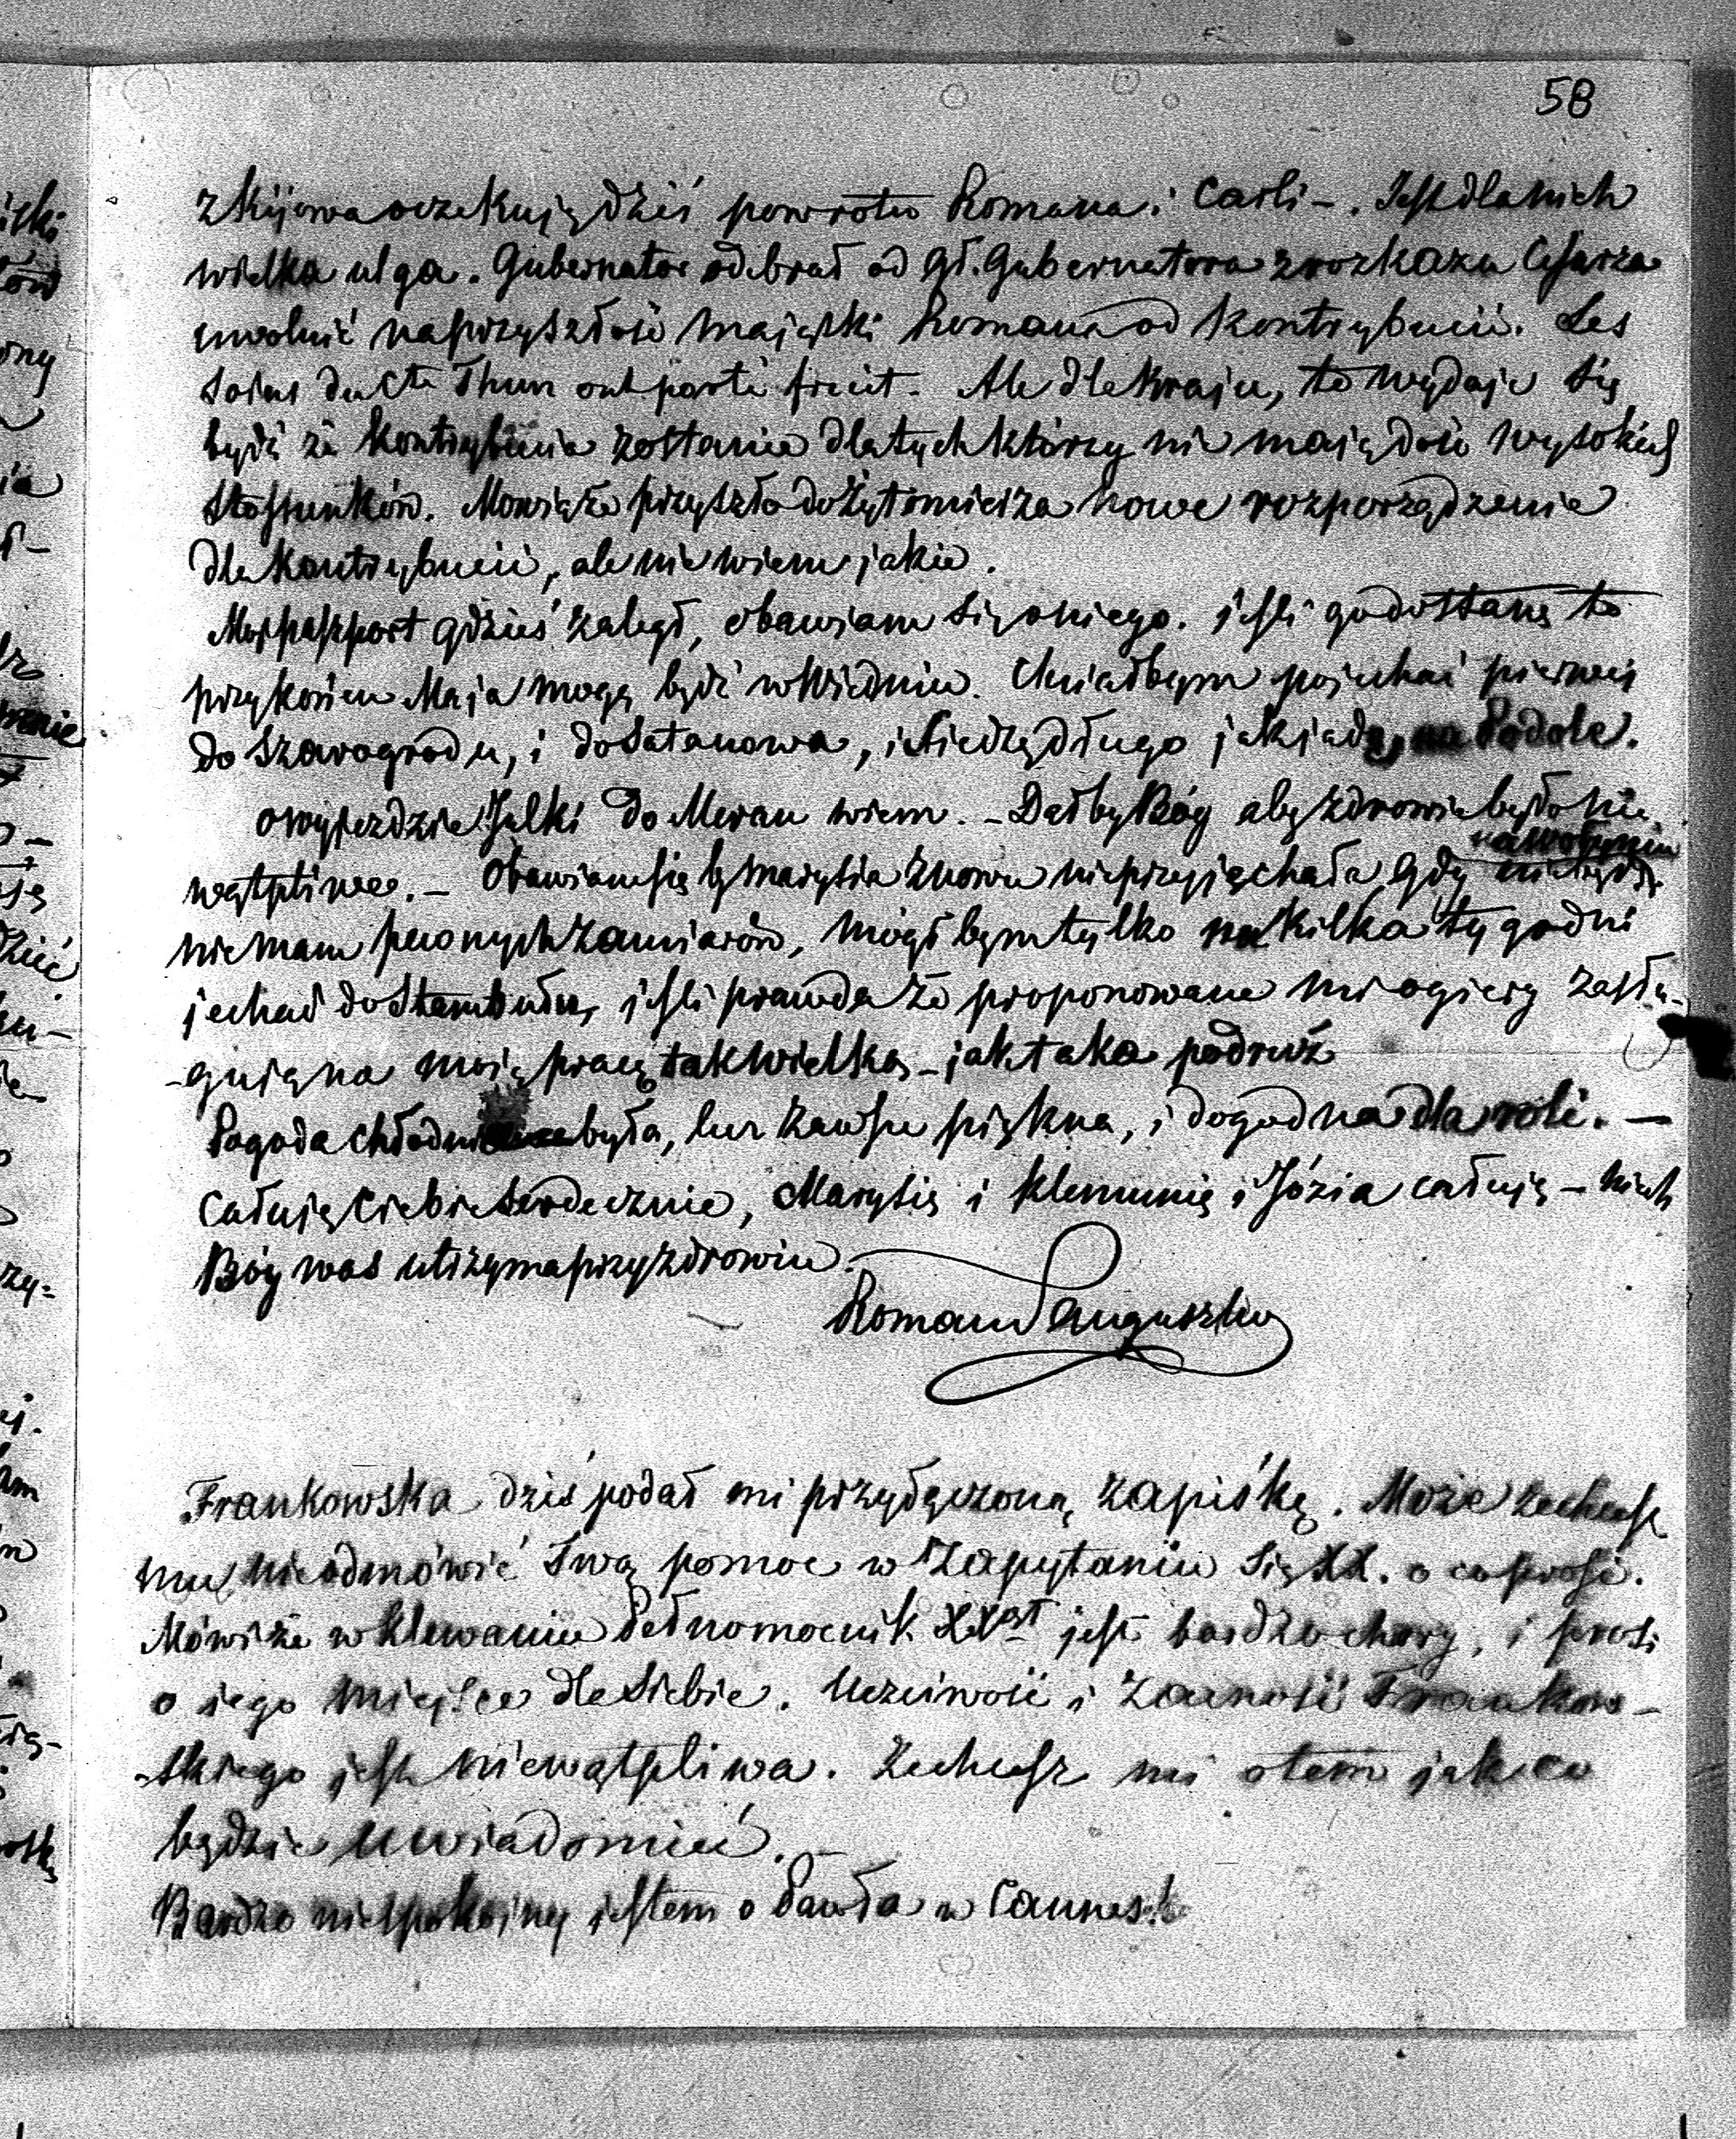 58
z Kijowa oczekuję dziś powrotu Romana i Carli -. Jest dla nich
wielka ulga. Gubernator odebrał od Gł. Gubernatora z rozkazu Cesarza
uwolnić na przyszłość majątki Romana od Kontrybucii. Les
soins du Cte Thun ont porté fruit. Ale dla Kraju, to wydaje się
bydź że Kontrybucia zostanie dla tych którzy nie mają dość wysokich
stossunków. Mówią że przyszło do Żytomierza nowe rozporządzenie
dla Kontrybucii, ale nie wiem jakie.
Moj paszport gdzieś zaległ, obawiam się o niego. jesli go dostanę to
przy końcu Maja mogę bydź w Widniu. Chciałbym pojechać pierwej
do Szarogrodu, i do Satanowa, i siedzę długo jak jadę na Podole.
o wyjezdzie Julki do Meran wiem. - Dał by Bóg aby zdrowie było nie
wątpliwe. - Obawiam się by Marysia znowu nie przyjechała gdy
na Wołyniu
nie mam pewnych zamiarów, mógł bym tylko na kilka tygodni
jechać do Stambułu, jesli prawda że proponowane mi ogiery zasłu-
-gują na moją pracę tak wielką - jak taka podruż
Pogoda chłodni była, lecz zawsze piękna, i dogodna dla roli. -
Całuję Ciebie serdecznie, Marysię i Klemunię i Józia całuję - niech
Bóg was utrzyma przy zdrowiu.
Roman Sanguszko
Frankowska dziś podał mi przyłączoną zapiskę. Może zechcesz
mu nie odmówić Twą pomoc w zapytaniu się XX. o co prosi.
Mówi że w Klewaniu Pełnomocnik XX jest bardzo chory, i prosi
o jego miejsce dla siebie. Uczciwość i zacność Frankow-
-skiego jest niewątpliwa. Zechcesz mi o tem jak co
będzie uwiadomić. -
Bardzo niespokojny jestem o Pawła w Cannes!